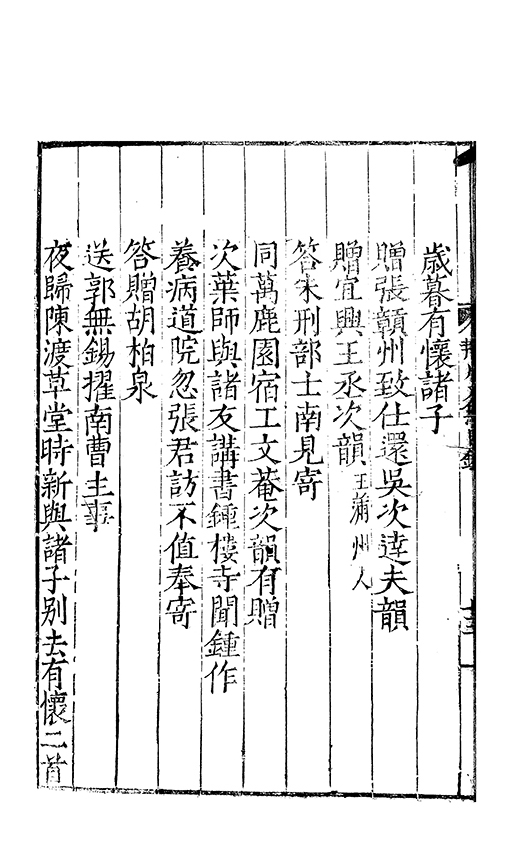 歲暮有懷諸子
贈張贛州致仕還吳次達夫韻
贈宜興王丞次韻王蒲州人
答朱刑部士南見寄
同萬鹿園宿工文菴次韻有贈
次葉師與諸友講書鍾樓寺聞鍾作
養病道院忽張君訪不值奉寄
答贈胡柏泉
送郭無錫擢南曹主事
夜歸陳渡草堂時新與諸子別去有懷二首